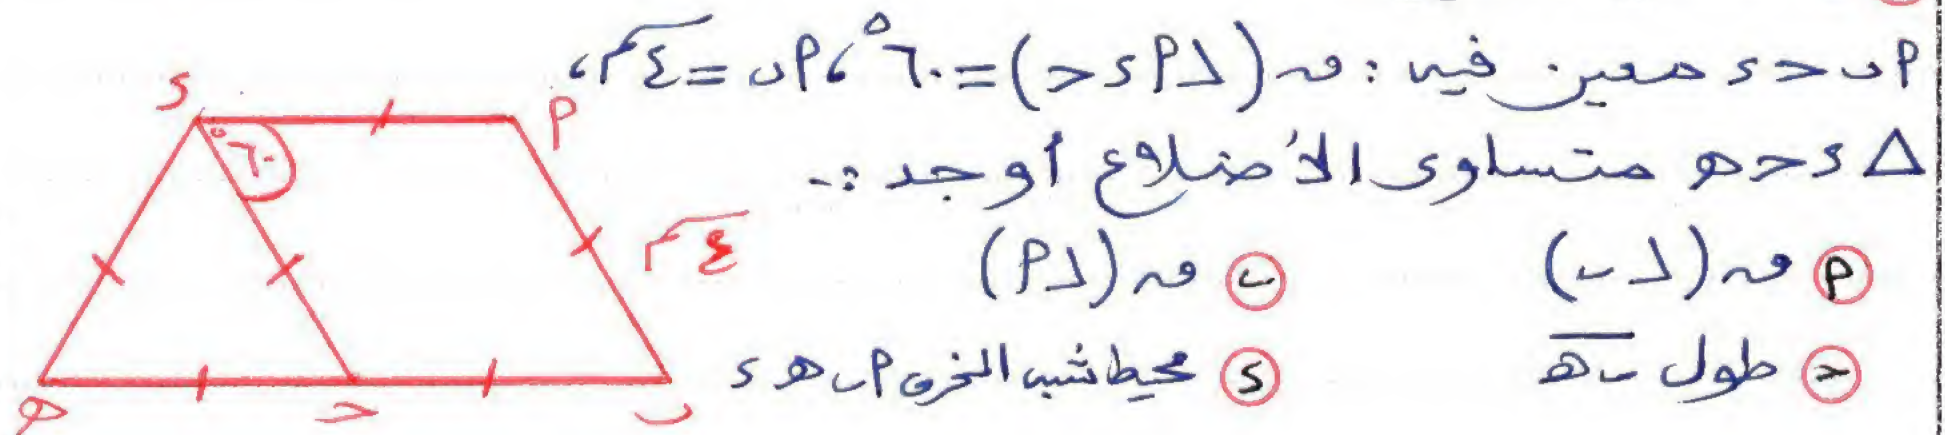 أ ب ح د معين فيه : ق (∠ أ د ح) = ٦٠° ، أ ب = ٤ سم ،
△ د ح ه متساوى الأضلاع أوجد :-
أ ق (∠ ب) ب ق (∠ أ)
ح طول ب ه د محيط شبه المنحرف أ ب ه د
د أ
٦٠°
٤ سم
ه ح ب